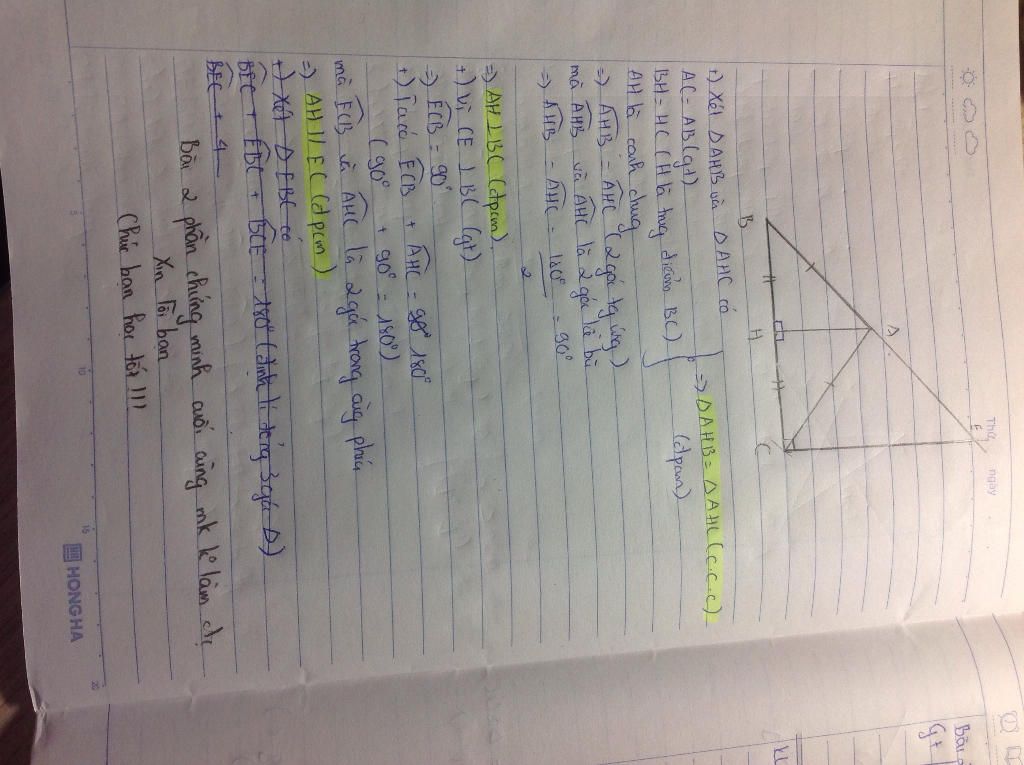 Thứ
ngày
A
E
B
H
C
+) Xét ΔAHB và ΔAHC có
AC = AB (gt)
BH = HC (H là trung điểm BC)
AH là cạnh chung
=> ΔAHB = ΔAHC (c.c.c)
(đpcm)
=> AHB = AHC (2 góc tg ứng)
mà AHB và AHC là 2 góc kề bù
=> AHB = AHC = 180° / 2 = 90°
=> AH ⊥ BC (đpcm)
+) Vì CE ⊥ BC (gt)
=> ECB = 90°
+) Ta có ECB + AHC = 180°
(90° + 90° = 180°)
mà ECB và AHC là 2 góc trong cùng phía
=> AH // EC (đpcm)
+) Xét ΔEBC có
BEC + EBC + BCE = 180° (định lí tổng 3 góc Δ)
BEC +
Bài 2 phần chứng minh cuối cùng mk ko làm đc
Xin lỗi bạn
Chúc bạn học tốt !!!
5
10
15
20
HONG HA
Bài
Gt